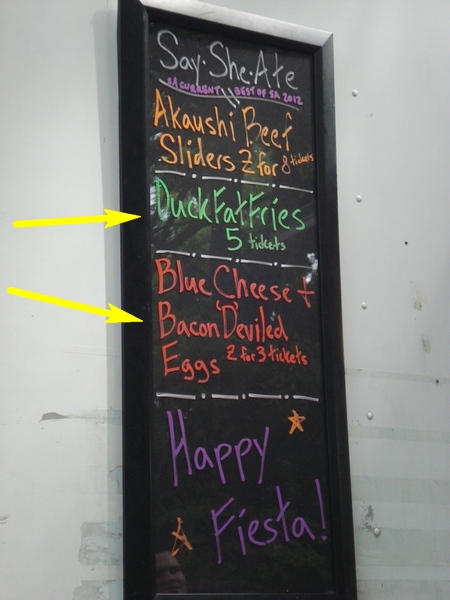 Say·She·Ate
SA CURRENT BEST OF SA 2012
Akaushi Beef
Sliders 2 for 8 tickets
Duck Fat Fries
5 tickets
Blue Cheese +
Bacon Deviled
Eggs 2 for 3 tickets
Happy
Fiesta!